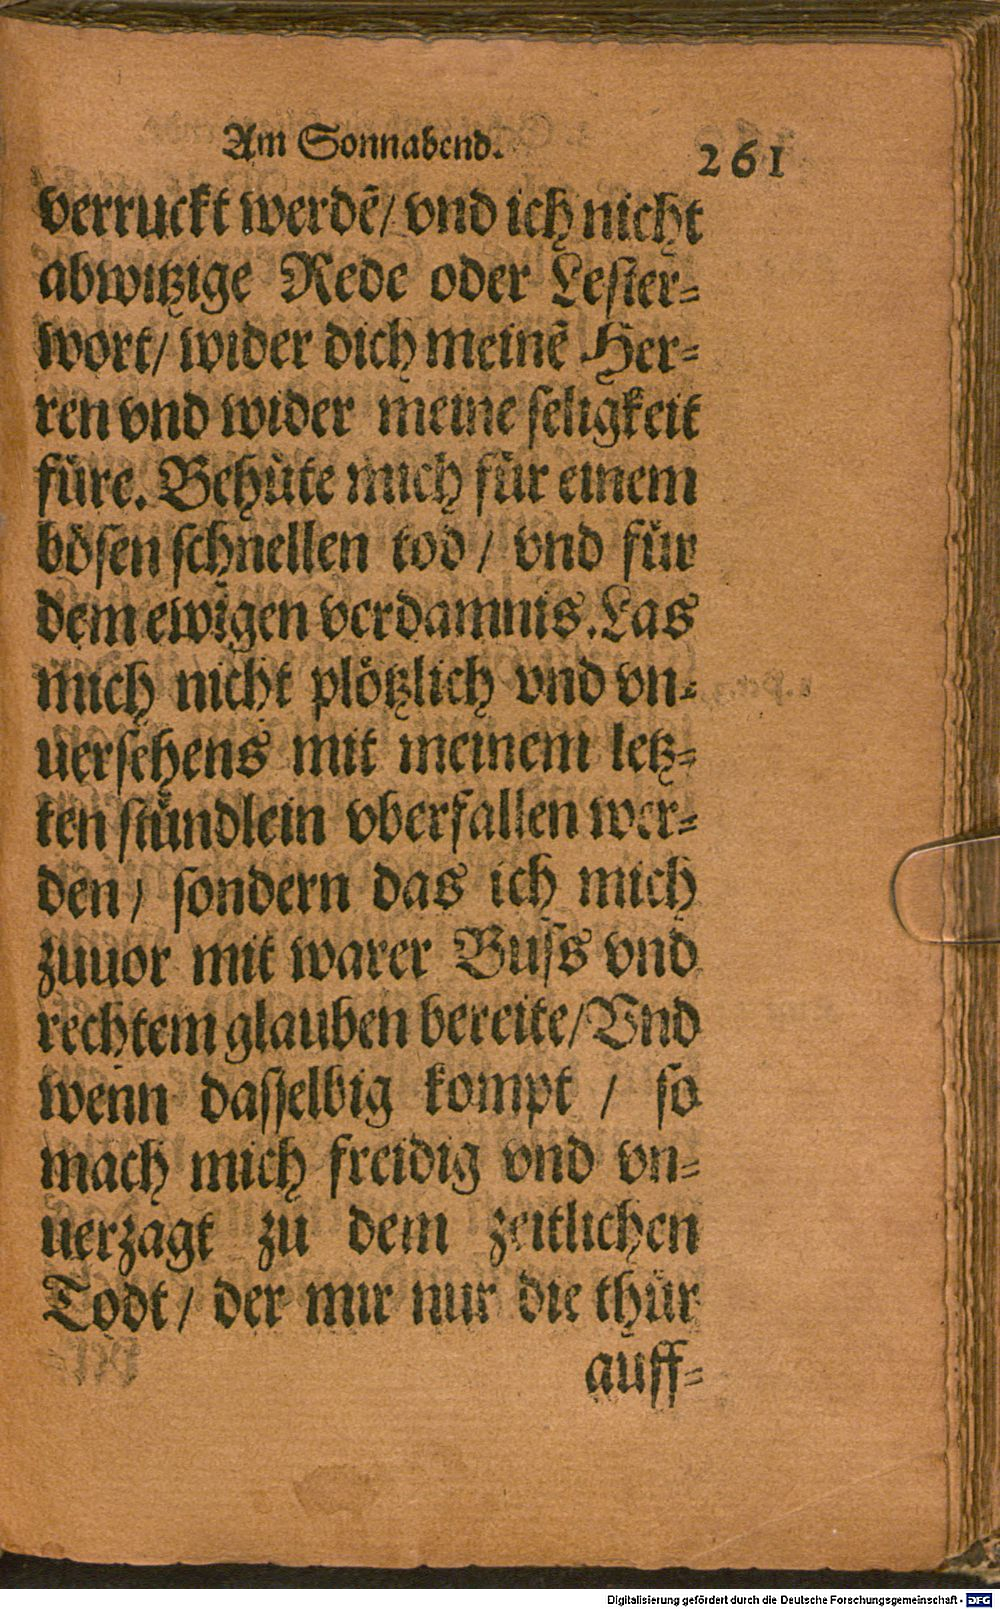 Am Sonnabend. 261
verruckt werdẽ/ vnd ich nicht
abwitzige Rede oder Lester-
wort/ wider dich meinẽ Her-
ren vnd wider meine seligkeit
füre. Behüte mich für einem
bösen schnellen tod / vnd für
dem ewigen verdamnis. Las
mich nicht plötzlich vnd vn-
uersehens mit meinem letz-
ten stündlein vberfallen wer-
den / sondern das ich mich
zuuor mit warer Buss vnd
rechtem glauben bereite/ Vnd
wenn dasselbig kompt / so
mach mich freidig vnd vn-
uerzagt zu dem zeitlichen
Todt / der mir nur die thür
auff-
Digitalisierung gefördert durch die Deutsche Forschungsgemeinschaft - DFG